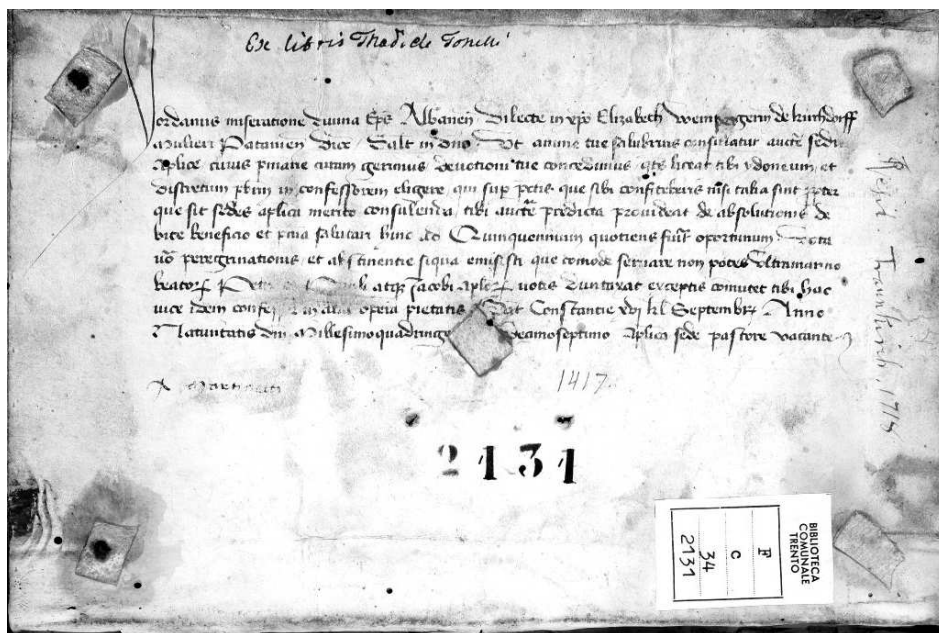 Ex libris Thadi de Tonelli
Jordanus miseratione divina Eps Albanen Dilecte in xpo Elizabeth de kirchdorff
Mulieri Patavien Dioc Salt in dno Ut anime tue salubrius consulatur aucte sedis
Aplice cuius pmarie curam gerimus devotioni tue concedimus qts liceat tibi ydoneum et
discretum pbrm in confessorem eligere qui sup pctis que sibi confiteberis nisi talia sint ppter
que sit sedes aplica merito consulenda tibi aucte predicta provideat de absolutionis de
bite beneficio et pnia salutari hinc ad Quinquennium quotiens fuit oportunum Vota
vo peregrinationis et abstinentie siqua emisisti que comode servare non potes Ultramarino
beator Petri et Pauli atq Jacobi aplor votis duntaxat exceptis comutet tibi hac
vice idem confes in alia opera pietatis Dat Constantie xvi kl Septembr Anno
Nativitatis dni Millesimoquadringe decimoseptimo Aplica sede pastore vacante
1417
2131
BIBLIOTECA
COMUNALE
TRENTO
F
C
34
2131
1714